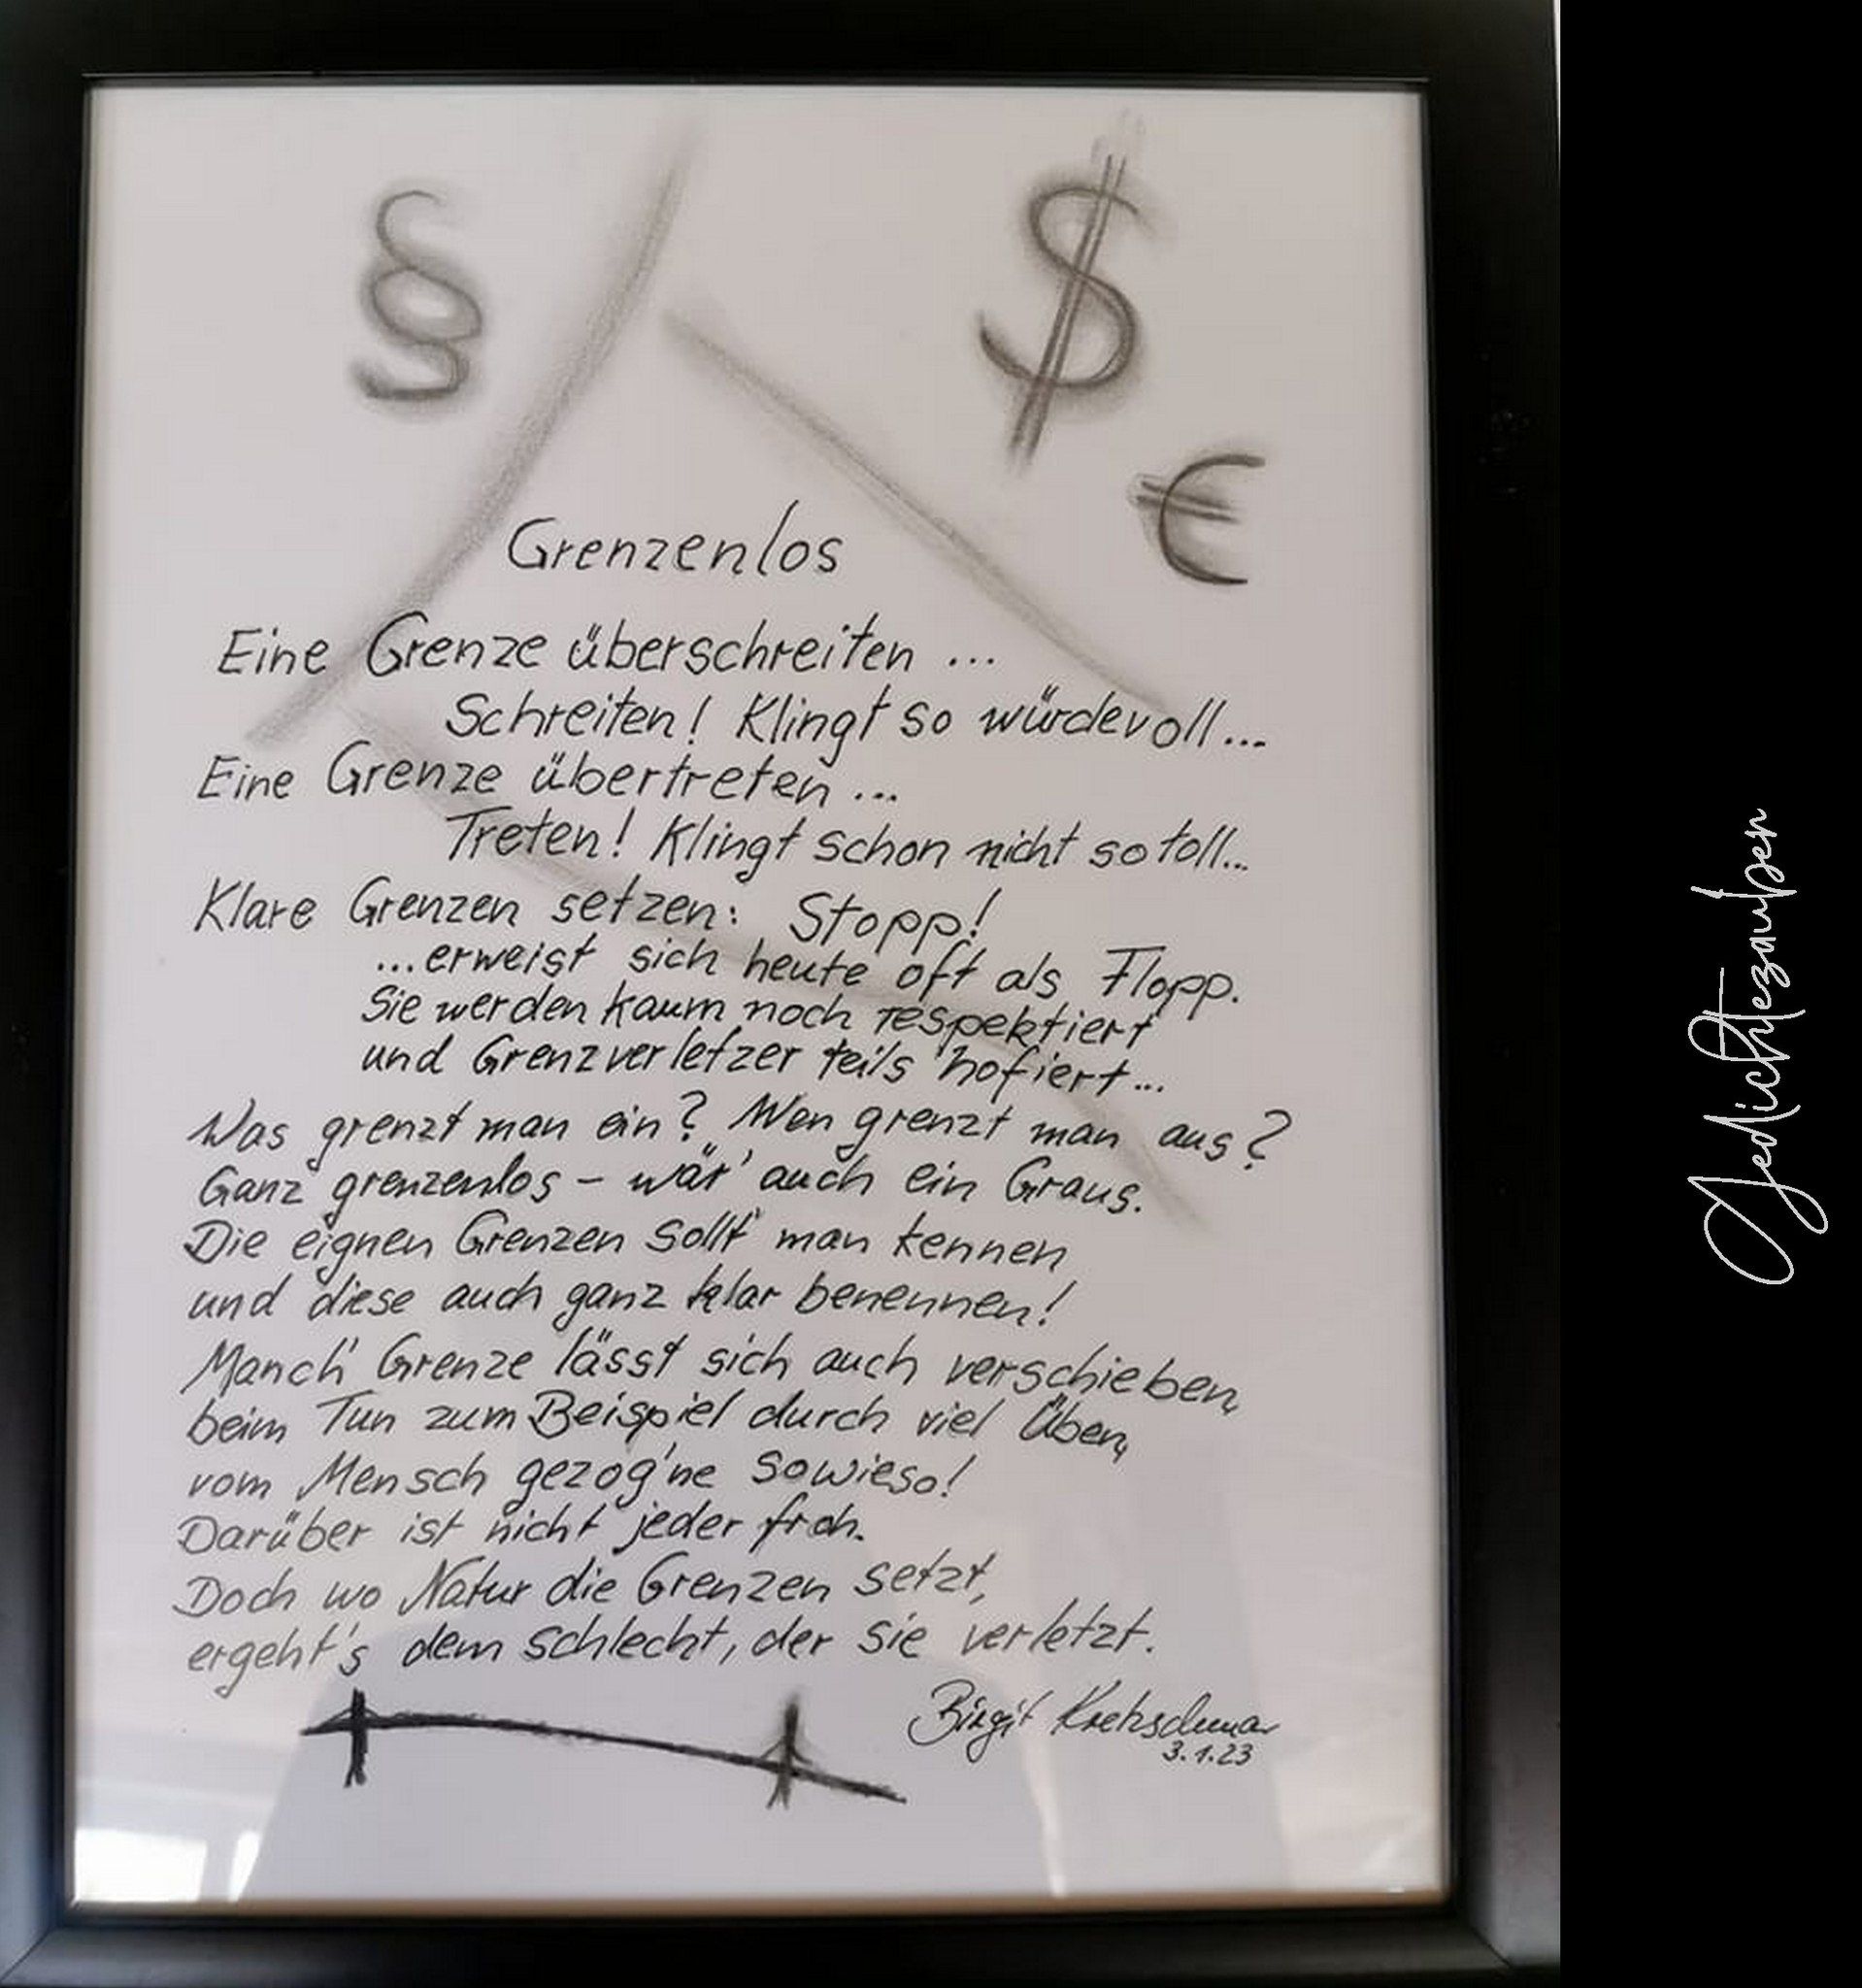 §
$
€
Grenzenlos
Eine Grenze überschreiten ...
Schreiten! Klingt so würdevoll...
Eine Grenze übertreten ...
Treten! Klingt schon nicht so toll...
Klare Grenzen setzen: Stopp!
...erweist sich heute oft als Flopp.
Sie werden kaum noch respektiert
und Grenzverletzer teils hofiert...
Was grenzt man ein? Wen grenzt man aus?
Ganz grenzenlos - wär' auch ein Graus.
Die eignen Grenzen sollt' man kennen
und diese auch ganz klar benennen!
Manch' Grenze lässt sich auch verschieben,
beim Tun zum Beispiel durch viel Üben,
vom Mensch gezog'ne sowieso!
Darüber ist nicht jeder froh.
Doch wo Natur die Grenzen setzt,
ergeht's dem schlecht, der sie verletzt.
Birgit Kretzschmar
3.1.23
Gedichtezauber